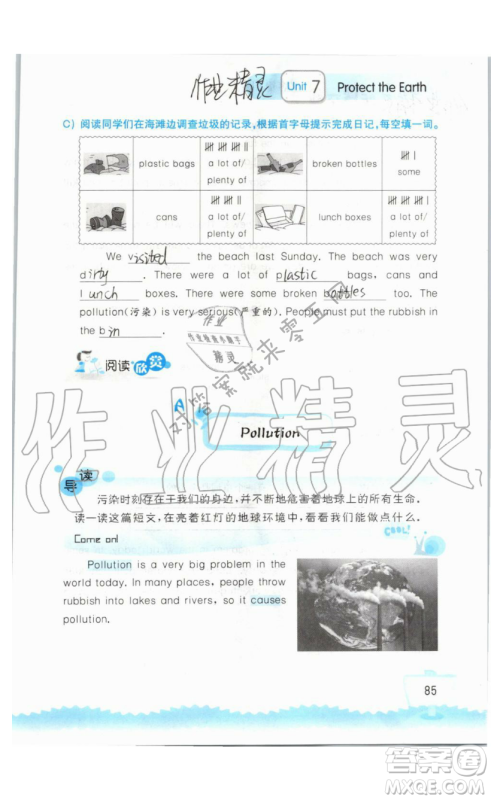 作业精灵 Unit 7 Protect the Earth
C) 阅读同学们在海滩边调查垃圾的记录,根据首字母提示完成日记,每空填一词。
plastic bags a lot of/ plenty of broken bottles some
cans a lot of/ plenty of lunch boxes a lot of/ plenty of
We visited the beach last Sunday. The beach was very
dirty. There were a lot of plastic bags, cans and
lunch boxes. There were some broken bottles too. The
pollution(污染) is very serious(严重的). People must put the rubbish in
the bin.
阅读欣赏
A
Pollution
导读
污染时刻存在于我们的身边,并不断地危害着地球上的所有生命。
读一读这篇短文,在亮着红灯的地球环境中,看看我们能做点什么。
Come on!
COOL!
Pollution is a very big problem in the
world today. In many places, people throw
rubbish into lakes and rivers, so it causes
pollution.
85
作业精灵
对答案就来零五网
作业
作业检查小帮手
精灵
答案圈
MXQE.COM